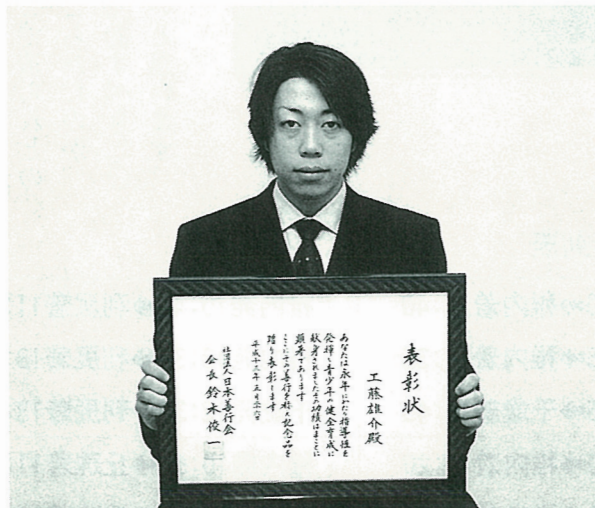 表彰状
工藤雄介殿
あなたは永年にわたり指導性を
発揮し青少年の健全育成に
献身されましたその功績はまことに
顕著であります
ここにその善行を称え記念品を
贈り表彰します
平成十三年五月二六日
社団法人日本善行会
会長鈴木俊一